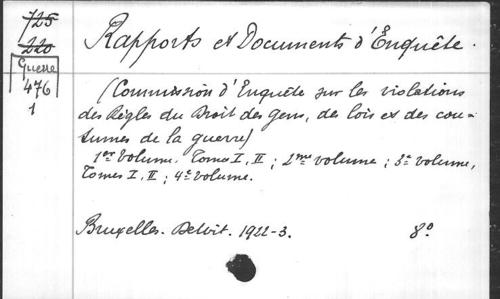 725
220
Guerre
476
1
Rapports et Documents d'Enquête.
(Commission d'Enquête sur les violations
des Règles du Droit des Gens, des lois et des cou-
tumes de la guerre)
1er volume. Tomes I, II; 2me volume; 3e volume,
Tomes I, II; 4e volume.
Bruxelles. Dewit. 1922-3. 8°